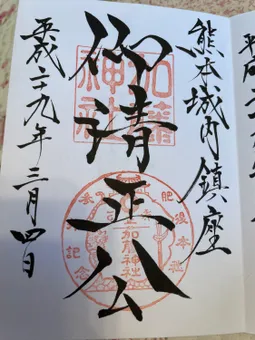 平成
熊本城内鎮座
仰清正公
平成二十九年三月四日
加藤神社
肥後本社
記念
加藤神社